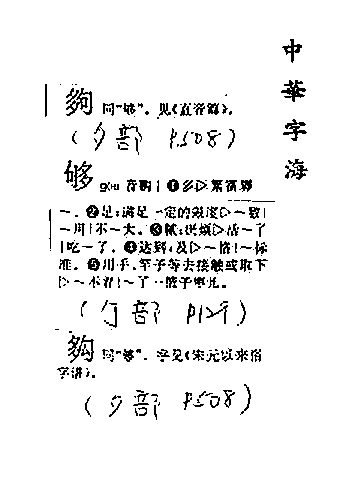 中華字海
夠 同"够"。见《直音篇》。
(夕部 P508)
够 gòu 音购 ❶多▷繁富夥
一。❷足;满足一定的限度▷一致|
一用|不一大。❸腻;厌烦▷活一了
|吃一了。❹达到;及▷一格|一标
准。❺用手、竿子等去接触或取下
▷一不着|一了一
(勹部 P129)
同"够"。字见《宋元以来俗
字谱》。
(夕部 P508)